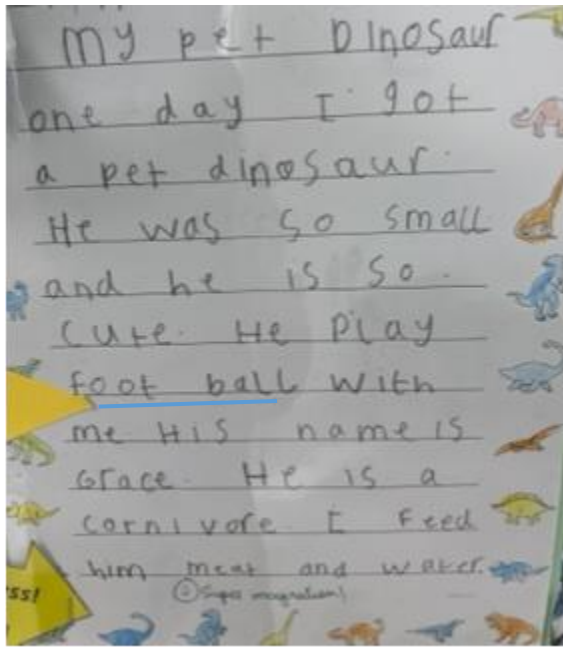 My pet Dinosaur
one day I got
a pet dinosaur.
He was so small
and he is so.
cute. He Play
foot ball with
me His name is
Grace. He is a
carnivore I Feed
him meat and water.
Super imagination!
ss!